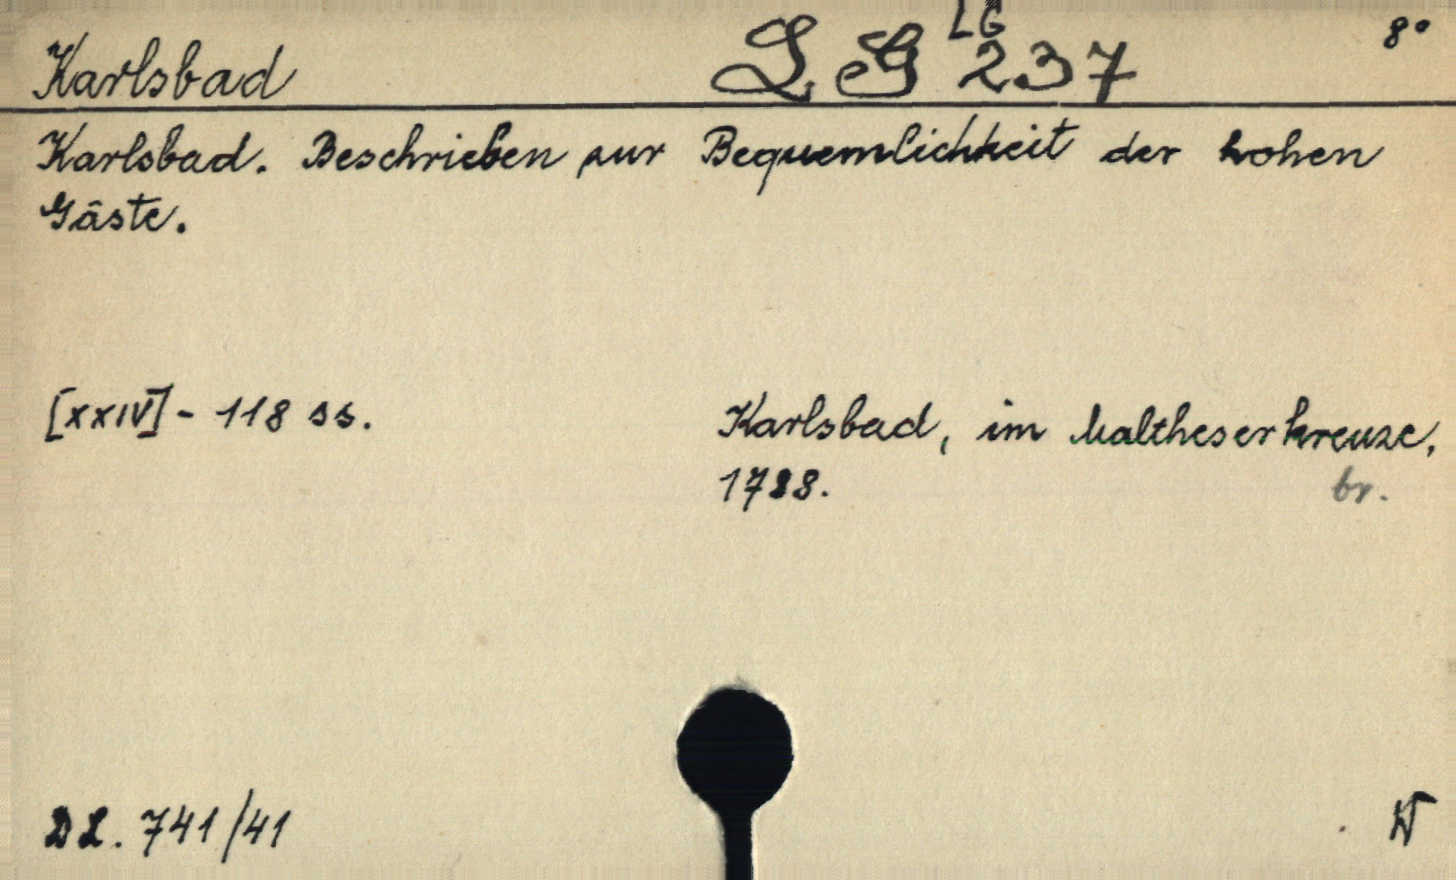 LG
8°
Karlsbad LG 237
Karlsbad. Beschrieben zur Bequemlichkeit der hohen
Gäste.
[XXIV] - 118 ss.
Karlsbad, im Maltheserkreuze,
1788.
br.
DL. 741/41